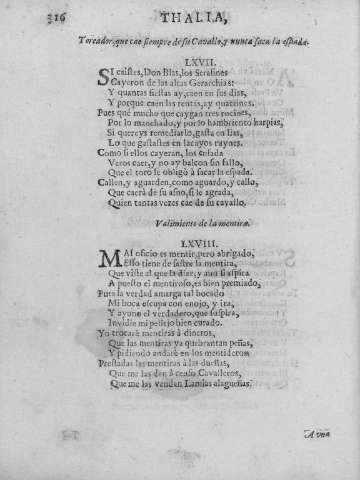 316 THALIA,
Toreador, que cae siempre de su Cavallo, y nunca saca la espada.
LXVII.
SI caistes, Don Blas, los Serafines
Cayeron de las altas Gerarchias:
Y quantas fiestas ay, caen en sus dias,
Y porque caen las rentas, ay quatrines.
Pues què mucho que caygan tres rocines,
Por lo manchado, y por lo hambriento harpias,
Si quereys remediarlo, gasta en lias,
Lo que gastastes en lacayos ruynes.
Como si ellos cayeran, los enfada
Veros caer, y no ay balcon sin fallo,
Que el toro le obligò à sacar la espada.
Callen, y aguarden, como aguardo, y callo,
Que caerà de su asno, si le agrada,
Quien tantas vezes cae de su cavallo.
Valimiento de la mentira.
LXVIII.
MAl oficio es mentir, pero abrigado,
Esso tiene de sastre la mentira,
Que viste al que la dize; y aun si aspira
A puesto el mentiroso, es bien premiado,
Pues la verdad amarga tal bocado
Mi boca escupa con enojo, y ira,
Y ayuno el verdadero, que suspira,
Invidie mi pellejo bien curado.
Yo trocarè mentiras à dineros,
Que las mentiras ya quebrantan peñas,
Y pidiendo andarè en los mentideros
Prestadas las mentiras à las dueñas,
Que me las den à censo Cavalleros,
Que me las vendan Lamias alagueñas.
A una